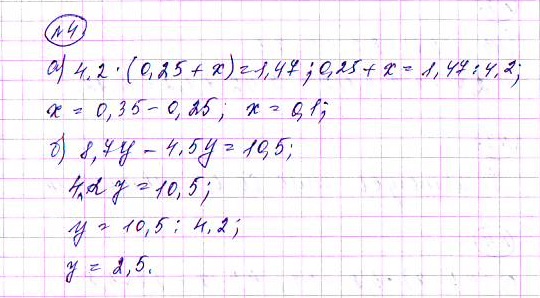 №4
а) 4,2 · (0,25 + x) = 1,47; 0,25 + x = 1,47 : 4,2;
x = 0,35 - 0,25; x = 0,1;
б) 8,7y - 4,5y = 10,5;
4,2y = 10,5;
y = 10,5 : 4,2;
y = 2,5.